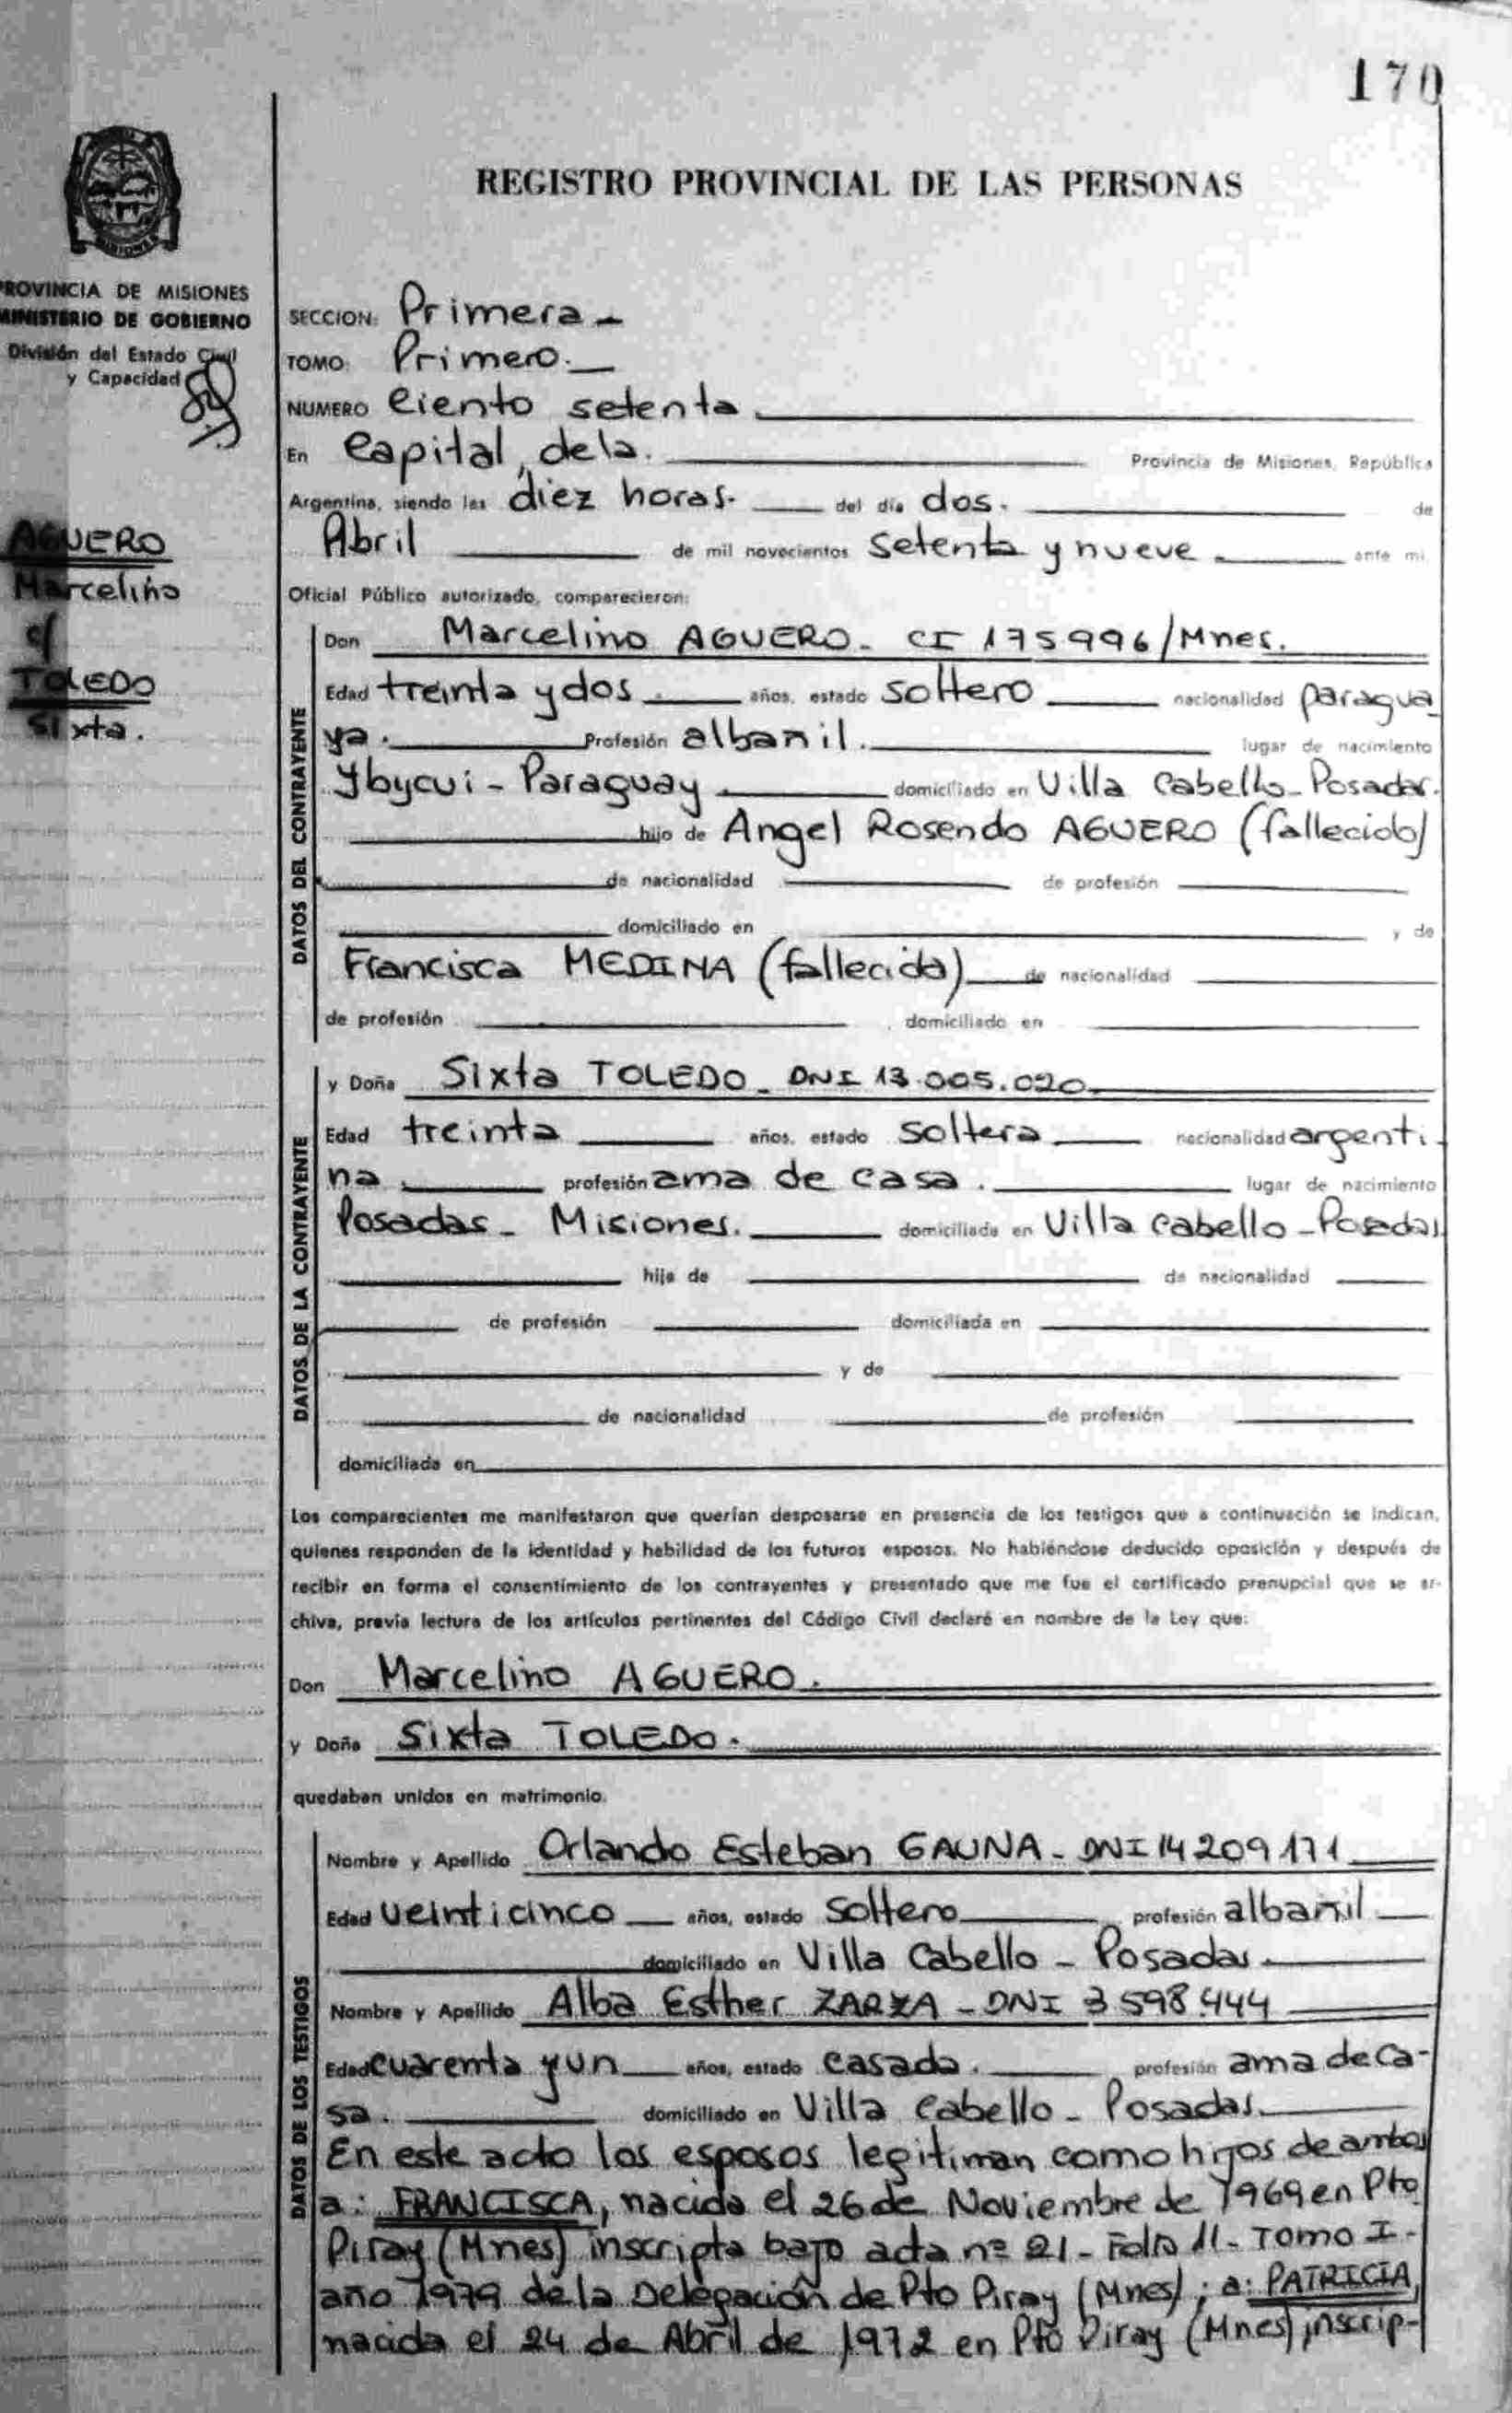 170
REGISTRO PROVINCIAL DE LAS PERSONAS
MISIONES
PROVINCIA DE MISIONES
MINISTERIO DE GOBIERNO
División del Estado Civil
y Capacidad
AGUERO
Marcelino
c/
TOLEDO
Sixta.
SECCION: Primera -
TOMO: Primero. -
NUMERO Ciento setenta
En Capital, de la. Provincia de Misiones, República
Argentina, siendo las diez horas. del día dos. de
Abril de mil novecientos setenta y nueve. ante mi
Oficial Público autorizado, comparecieron:
DATOS DEL CONTRAYENTE
Don Marcelino AGUERO - CI 175996/Mnes.
Edad treinta y dos. años, estado soltero nacionalidad paragua
ya. Profesión albañil. lugar de nacimiento
Ybycui - Paraguay domiciliado en Villa Cabello - Posadas.
hijo de Angel Rosendo AGUERO (fallecido)
de nacionalidad de profesión
domiciliado en y de
Francisca MEDINA (fallecida) de nacionalidad
de profesión domiciliado en
DATOS DE LA CONTRAYENTE
y Doña Sixta TOLEDO - DNI 13.005.020
Edad treinta años, estado soltera nacionalidad argenti-
na. profesión ama de casa. lugar de nacimiento
Posadas - Misiones. domiciliada en Villa Cabello - Posadas
hija de de nacionalidad
de profesión domiciliada en
y de
de nacionalidad de profesión
domiciliada en
Los comparecientes me manifestaron que querían desposarse en presencia de los testigos que a continuación se indican,
quienes responden de la identidad y habilidad de los futuros esposos. No habiéndose deducido oposición y después de
recibir en forma el consentimiento de los contrayentes y presentado que me fue el certificado prenupcial que se ar-
chiva, previa lectura de los artículos pertinentes del Código Civil declaré en nombre de la Ley que:
Don Marcelino AGUERO.
y Doña Sixta TOLEDO.
quedaban unidos en matrimonio.
DATOS DE LOS TESTIGOS
Nombre y Apellido Orlando Esteban GAUNA - DNI 14209171
Edad veinticinco años, estado soltero profesión albañil
domiciliado en Villa Cabello - Posadas.
Nombre y Apellido Alba Esther ZARZA - DNI 3598444
Edad cuarenta y un años, estado casada. profesión ama de ca-
sa. domiciliado en Villa Cabello - Posadas.
En este acto los esposos legitiman como hijos de ambos
a: FRANCISCA, nacida el 26 de Noviembre de 1969 en Pto
Piray (Mnes) inscripta bajo acta nº 21 - Folio 11 - Tomo I -
año 1979 de la Delegación de Pto Piray (Mnes); a: PATRICIA,
nacida el 24 de Abril de 1972 en Pto Piray (Mnes) inscrip-